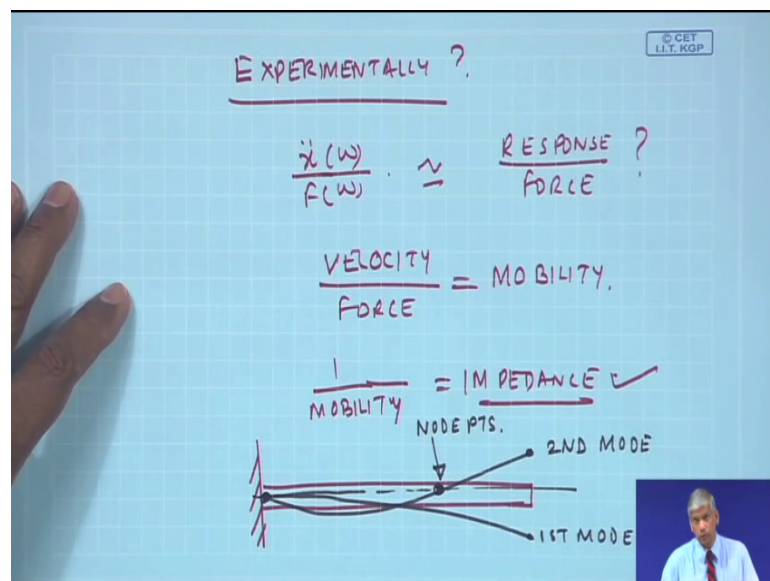 © CET
I.I.T. KGP
EXPERIMENTALLY ?
ẍ(W) / F(W) . ≃ RESPONSE / FORCE ?
VELOCITY / FORCE = MOBILITY.
1 / MOBILITY = IMPEDANCE ✓
NODE PTS.
2ND MODE
1ST MODE